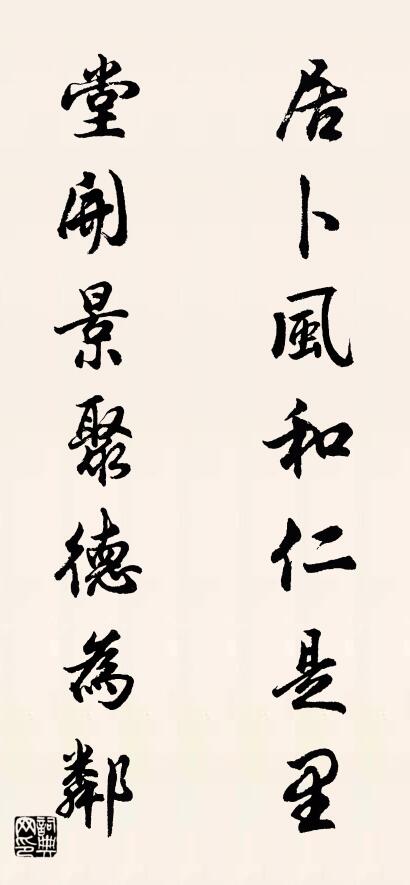 居卜風和仁是里
堂開景聚德為鄰
詞典网印